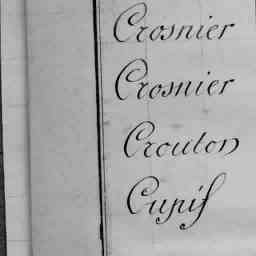 Crosnier
Crosnier
Crouton
Cupif